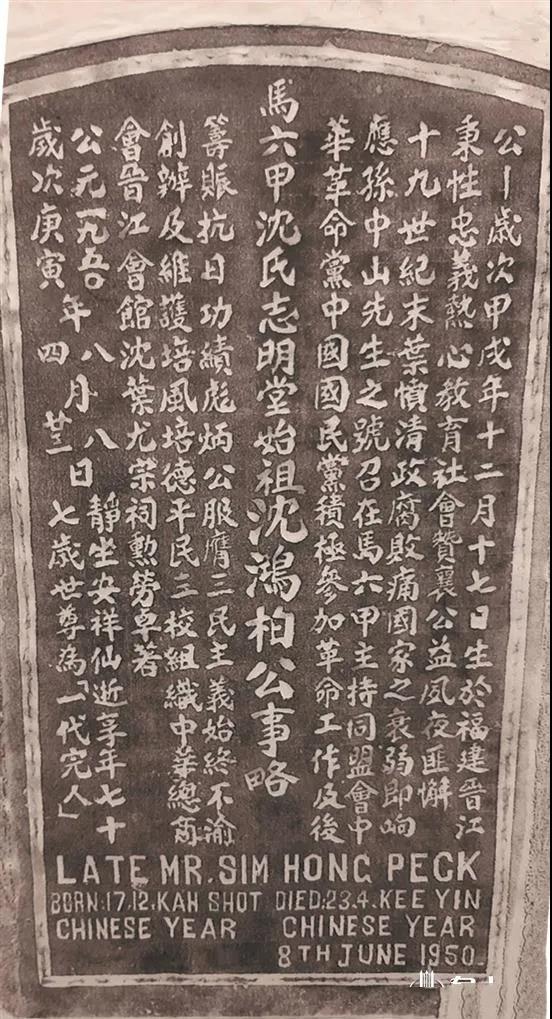 公丨歲次甲戌年十二月十七日生於福建晉江
秉性忠義熱心教育社會贊襄公益夙夜匪懈
十九世紀末葉憤清政腐敗痛國家之衰弱即响
應孫中山先生之號召在馬六甲主持同盟會中
華革命黨中國國民黨積極參加革命工作及後
馬六甲沈氏志明堂始祖沈鴻柏公事略
籌賑抗日功績彪炳公服膺三民主義始終不渝
創辦及維護培風培德平民三校組織中華總商
會晉江會館沈葉尤宗祠勲勞卓著
公元一九五〇年八月八日靜坐安祥仙逝享年七十
歲次庚寅四廿三七歲世尊為「一代完人」
LATE MR. SIM HONG PECK
BORN:17.12.KAH SHOT DIED:23.4.KEE YIN
CHINESE YEAR CHINESE YEAR
8TH JUNE 1950